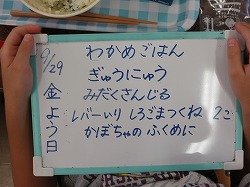 9/29
金
よ
う
日
わかめごはん
ぎゅうにゅう
みだくさんじる
レバーいり しろごまつくね 2こ
かぼちゃの ふくめに